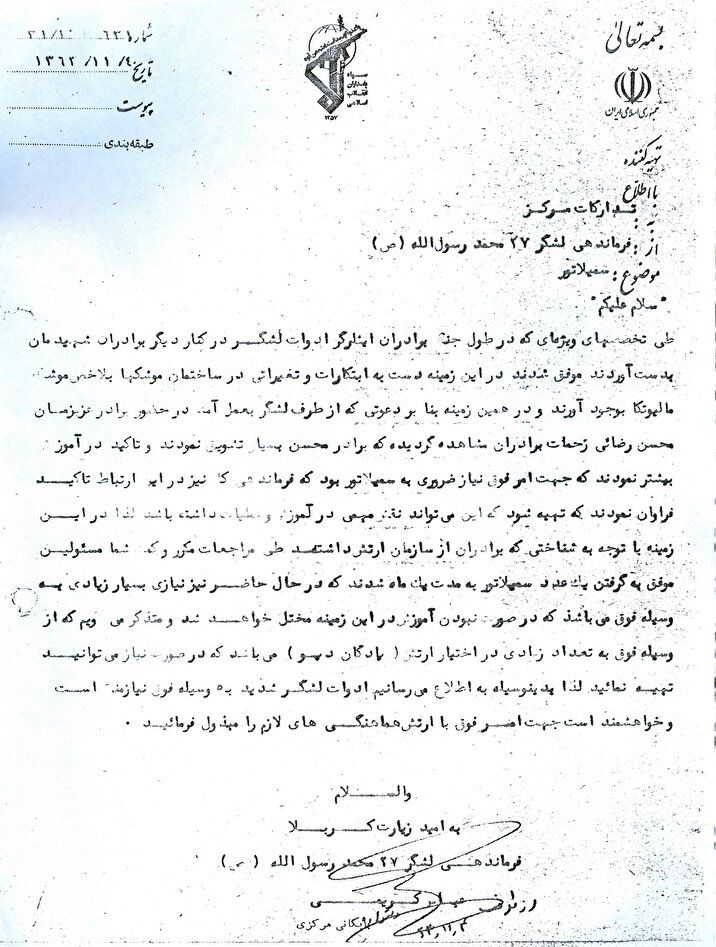 بسمه تعالی
جمهوری اسلامی ایران
سپاه
پاسداران
انقلاب
اسلامی
۱۳۵۷
شماره
تاریخ ۱۳۶۲/۱۱/۴
پیوست
طبقه‌بندی
تهیه کننده
با اطلاع
به : تدارکات مرکز
از : فرماندهی لشگر ۲۷ محمد رسول‌الله (ص)
موضوع : سمیلاتور
"سلام علیکم"
طی تخصصهای ویژه‌ای که در طول جنگ برادران ایثارگر ادوات لشگر در کنار دیگر برادران شهیدمان
بدست آوردند موفق شدند در این زمینه دست به ابتکارات و تغییراتی در ساختمان موشکها بلاخص موشک
مالیوتکا بوجود آورند و در همین زمینه بنا بر دعوتی که از طرف لشگر بعمل آمد در حضور برادر عزیزمان
محسن رضائی زحمات برادران مشاهده گردیده که برادر محسن بسیار تشویق نمودند و تاکید در آموزش
بیشتر نمودند که جهت امر فوق نیاز ضروری به سمیلاتور بود که فرماندهی کل نیز در این ارتباط تاکید
فراوان نمودند که تهیه شود که این می‌تواند نقش مهمی در آموزش و عملیات داشته باشد لذا در این
زمینه با توجه به شناختی که برادران از سازمان ارتش داشتند طی مراجعات مکرر و کمک شما مسئولین
موفق به گرفتن یک عدد سمیلاتور به مدت یک ماه شدند که در حال حاضر نیز نیازی بسیار زیادی به
وسیله فوق می‌باشد که در صورت نبودن آموزش در این زمینه مختل خواهد شد و متذکر می شویم که از
وسیله فوق به تعداد زادی در اختیار ارتش ( پادگان دپو ) می‌باشد که در صورت نیاز می‌توانید
تهیه نمائید لذا بدینوسیله به اطلاع می‌رسانیم ادوات لشگر شدید به وسیله فوق نیازمند است
و خواهشمند است جهت امر فوق با ارتش هماهنگی های لازم را مبذول فرمائید .
والسلام
به امید زیارت کربلا
فرماندهی لشگر ۲۷ محمد رسول الله (ص)
عباس کریمی
بایگانی مرکزی